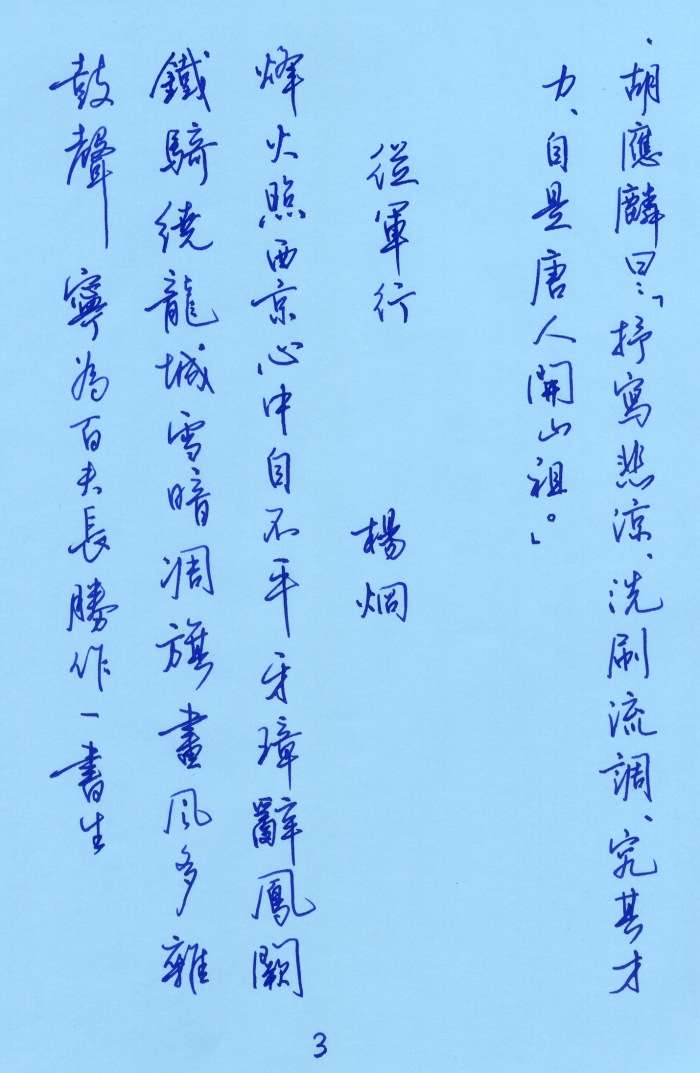 、胡應麟曰:「抒寫悲涼、洗刷流調、究其才
力、自是唐人開山祖。」
從軍行 楊烱
烽火照西京心中自不平牙璋辭鳳闕
鐵騎繞龍城雪暗凋旗畫風多雜
鼓聲寧為百夫長勝作一書生
3